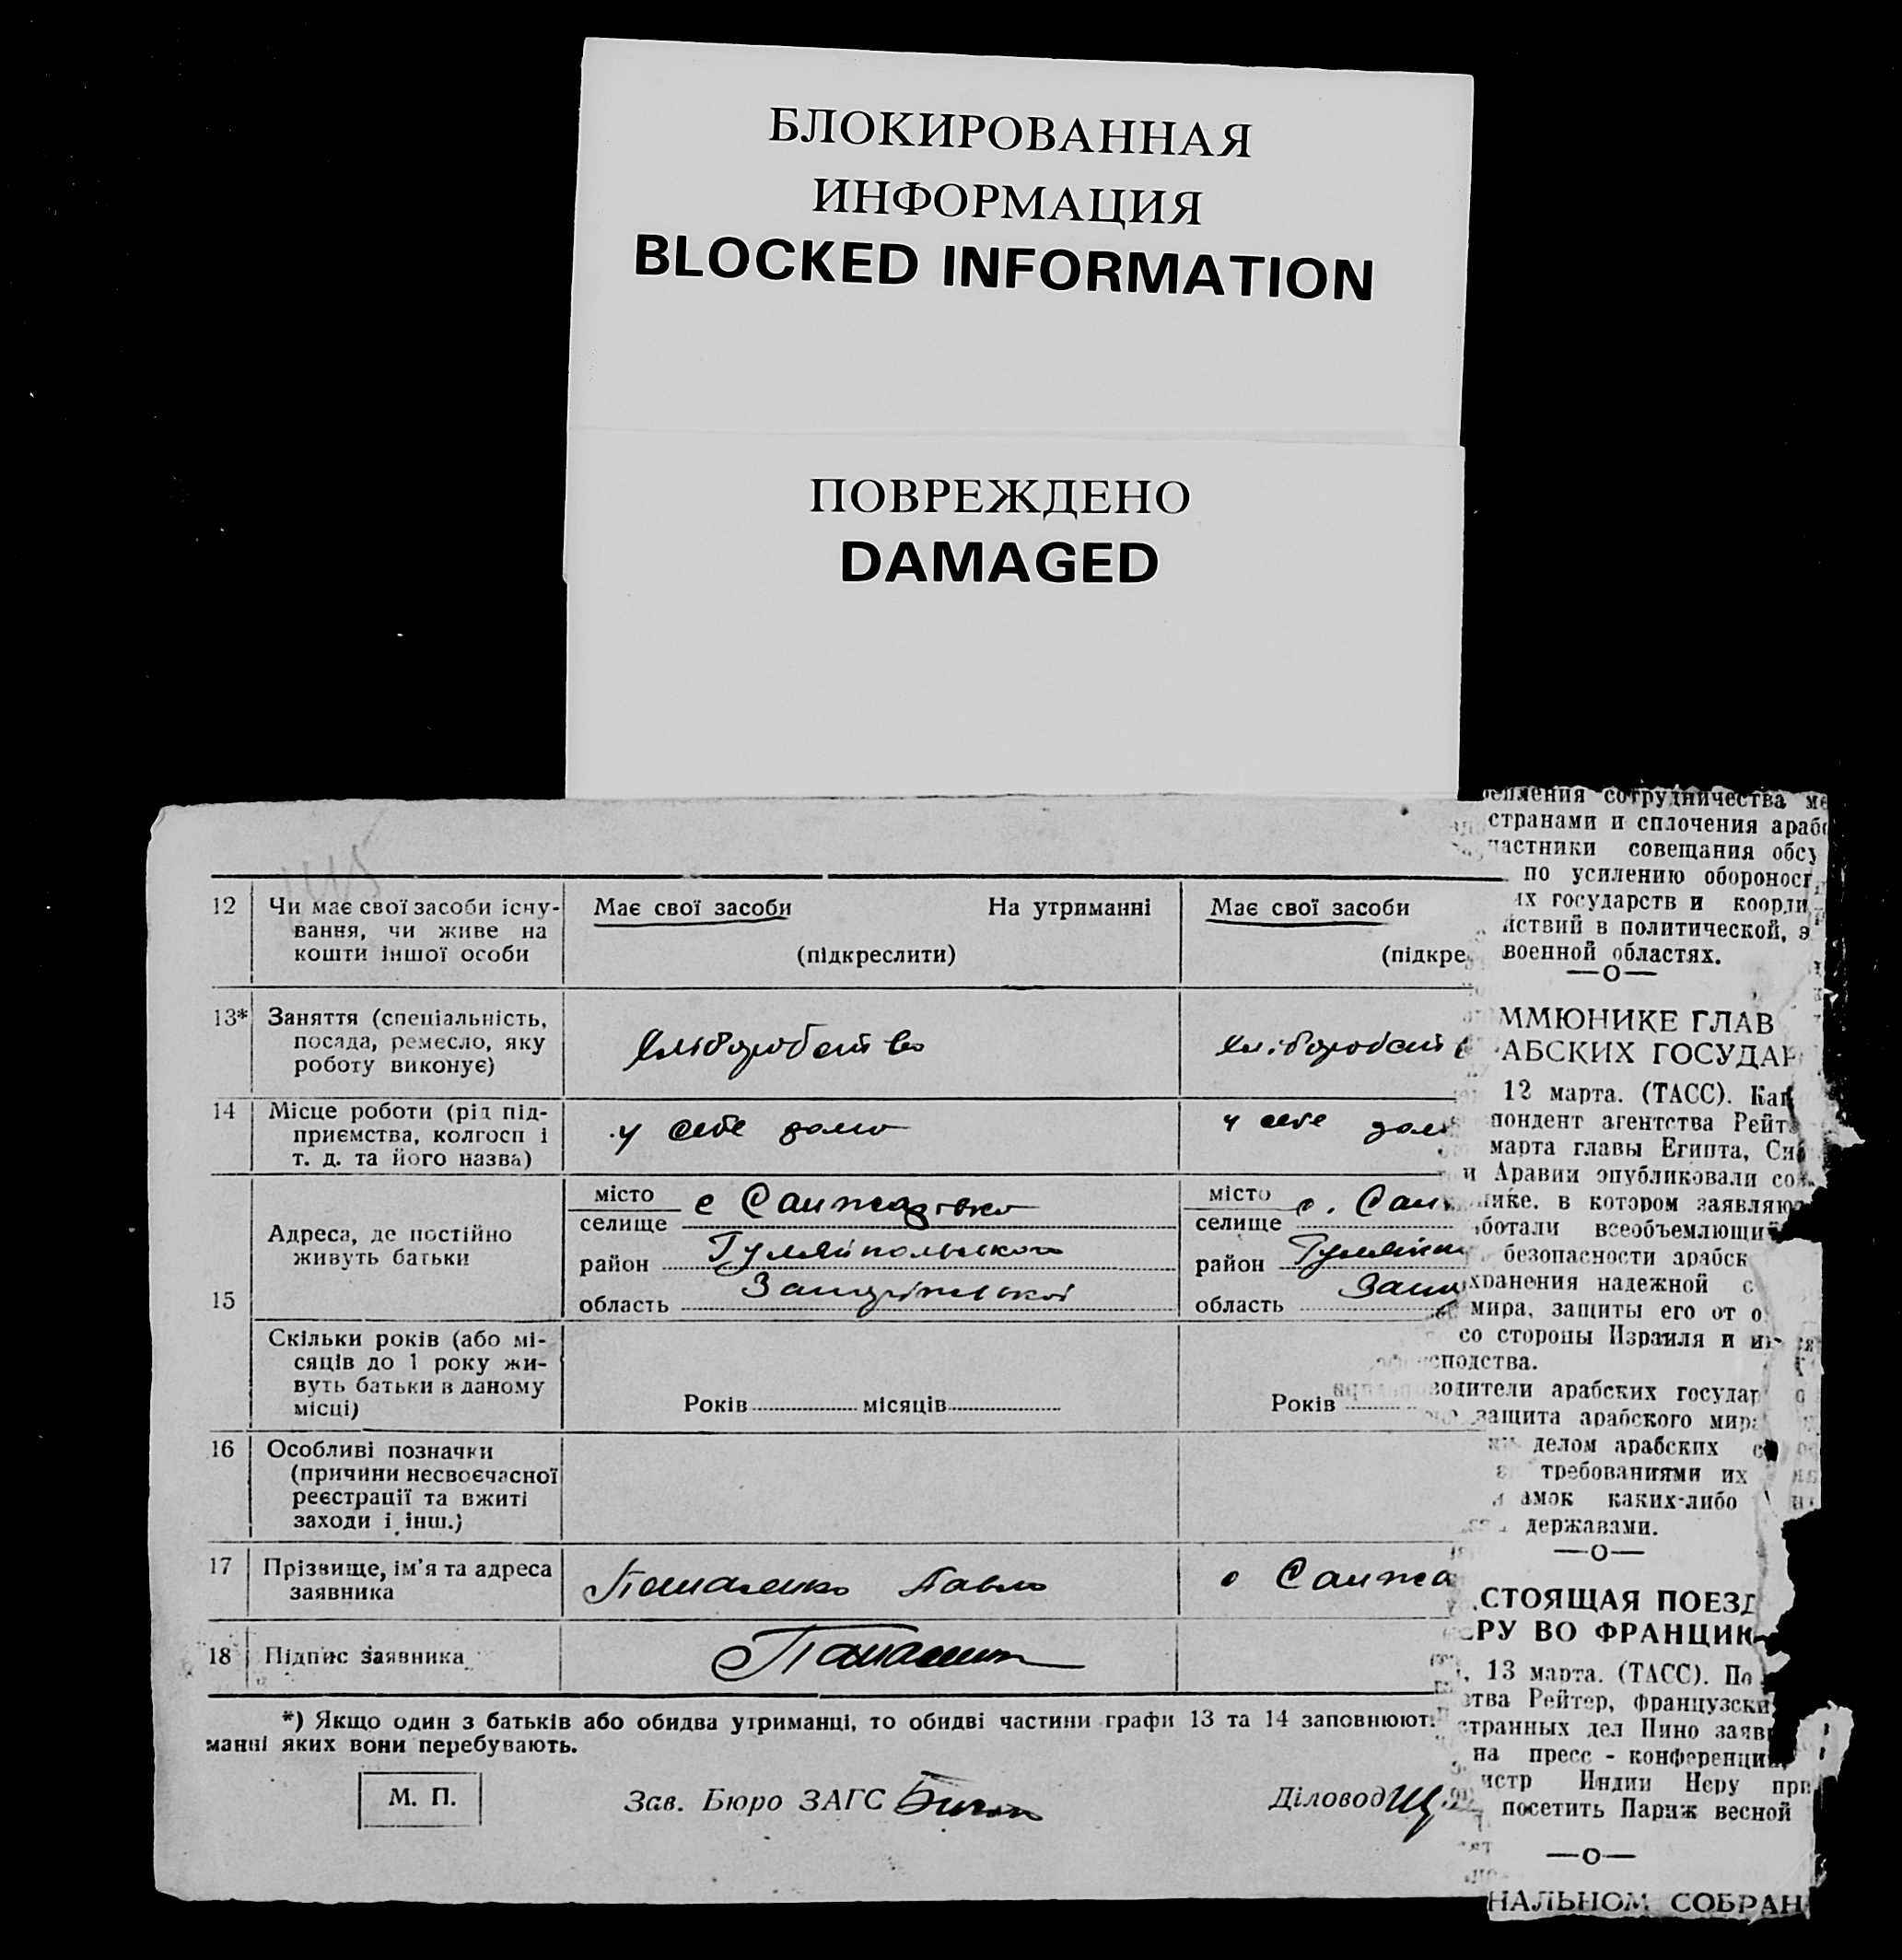 БЛОКИРОВАННАЯ
ИНФОРМАЦИЯ
BLOCKED INFORMATION
ПОВРЕЖДЕНО
DAMAGED
12 Чи має свої засоби існу-
вання, чи живе на
кошти іншої особи
Має свої засоби На утриманні
(підкреслити)
Має свої засоби
(підкре
13* Заняття (спеціальність,
посада, ремесло, яку
роботу виконує)
Хліборобство
хліборобств
14 Місце роботи (рід під-
приємства, колгосп і
т. д. та його назва)
у себе дома
у себе дом
15
Адреса, де постійно
живуть батьки
місто с
селище
район Гуляйпольського
область Запорізької
місто с.
селище
район
область
Скільки років (або мі-
сяців до 1 року жи-
вуть батьки в даному
місці)
Років місяців
Років
16 Особливі позначки
(причини несвоєчасної
реєстрації та вжиті
заходи і інш.)
17 Прізвище, ім'я та адреса
заявника
Павло
18 Підпис заявника
*) Якщо один з батьків або обидва утриманці, то обидві частини графи 13 та 14 заповнюют
манні яких вони перебувають.
М. П.
Зав. Бюро ЗАГС
Діловод
сотрудничества ме
странами и сплочения араб
частники совещания обсу
по усилению обороносп
их государств и коорди
йствий в политической, э
военной областях.
—О—
ММЮНИКЕ ГЛАВ
АБСКИХ ГОСУДАР
12 марта. (ТАСС). Как
пондент агентства Рейт
марта главы Египта, Си
и Аравии опубликовали со
нике, в котором заявляю
ботали всеобъемлющий
безопасности арабск
хранения надежной с
мира, защиты его от о
со стороны Израиля и
сподства.
водители арабских государ
защита арабского мира
делом арабских с
требованиями их
амок каких-либо
державами.
—О—
СТОЯЩАЯ ПОЕЗД
РУ ВО ФРАНЦИЮ
, 13 марта. (ТАСС). По
тва Рейтер, французски
странных дел Пино заяв
на пресс - конференции,
истр Индии Неру при
посетить Париж весной
—О—
НАЛЬНОМ СОБРАН